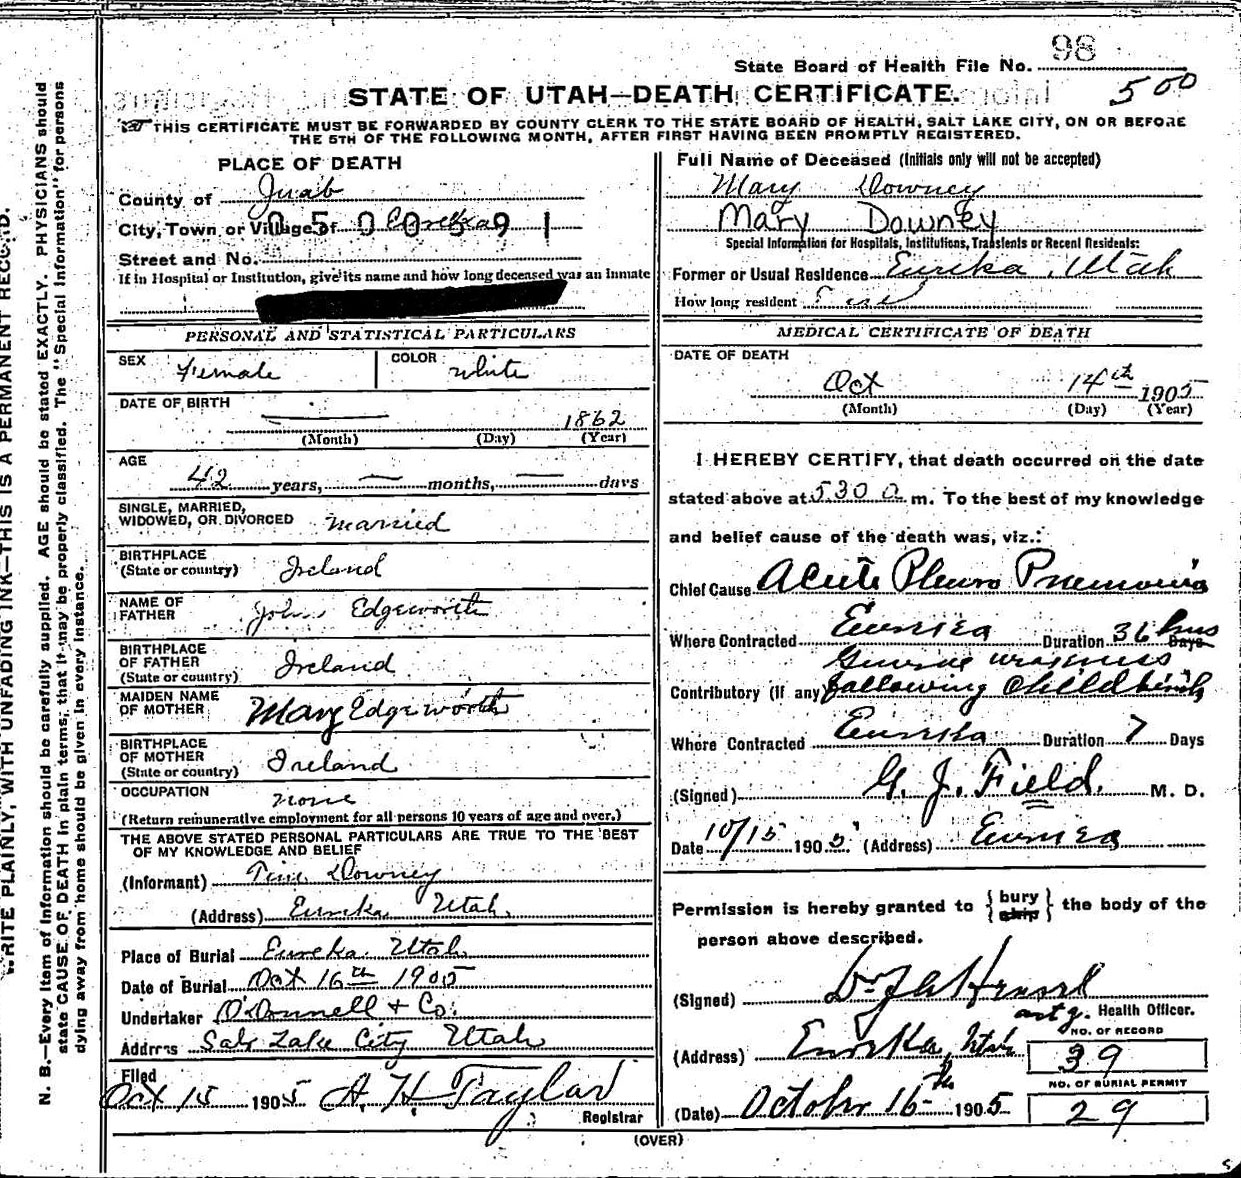 98
State Board of Health File No.
500
STATE OF UTAH—DEATH CERTIFICATE.
THIS CERTIFICATE MUST BE FORWARDED BY COUNTY CLERK TO THE STATE BOARD OF HEALTH, SALT LAKE CITY, ON OR BEFORE
THE 5TH OF THE FOLLOWING MONTH, AFTER FIRST HAVING BEEN PROMPTLY REGISTERED.
WRITE PLAINLY, WITH UNFADING INK—THIS IS A PERMANENT RECORD.
N. B.—Every item of information should be carefully supplied. AGE should be stated EXACTLY. PHYSICIANS should
state CAUSE OF DEATH in plain terms, that it may be properly classified. The "Special Information" for persons
dying away from home should be given in every instance.
PLACE OF DEATH
County of Juab
City, Town or Village of Eureka
0500591
Street and No.
If in Hospital or Institution, give its name and how long deceased was an inmate
PERSONAL AND STATISTICAL PARTICULARS
SEX Female COLOR White
DATE OF BIRTH
— 1862
(Month) (Day) (Year)
AGE
42 years, — months, — days
SINGLE, MARRIED,
WIDOWED, OR DIVORCED Married
BIRTHPLACE
(State or country) Ireland
NAME OF
FATHER John Edgeworth
BIRTHPLACE
OF FATHER
(State or country) Ireland
MAIDEN NAME
OF MOTHER Mary Edgeworth
BIRTHPLACE
OF MOTHER
(State or country) Ireland
OCCUPATION none
(Return remunerative employment for all persons 10 years of age and over.)
THE ABOVE STATED PERSONAL PARTICULARS ARE TRUE TO THE BEST
OF MY KNOWLEDGE AND BELIEF
(Informant) Tim Downey
(Address) Eureka Utah.
Place of Burial Eureka Utah
Date of Burial Oct 16th 1905
Undertaker O'Donnell & Co.
Address Salt Lake City Utah
Filed
Oct 15 1905 A. H. Taylor
Registrar
Full Name of Deceased (Initials only will not be accepted)
Mary Downey
Mary Downey
Special Information for Hospitals, Institutions, Transients or Recent Residents:
Former or Usual Residence Eureka, Utah
How long resident
MEDICAL CERTIFICATE OF DEATH
DATE OF DEATH
Oct 14th 1905
(Month) (Day) (Year)
I HEREBY CERTIFY, that death occurred on the date
stated above at 530 a m. To the best of my knowledge
and belief cause of the death was, viz.:
Chief Cause Acute Pleuro Pneumonia
Where Contracted Eureka Duration 36 hrs Days
General weakness
Contributory (if any) following Childbirth
Where Contracted Eureka Duration 7 Days
(Signed) G. J. Field. M. D.
Date 10/15 1905 (Address) Eureka
Permission is hereby granted to { bury ship } the body of the
person above described.
(Signed) Dr
actg. Health Officer.
(Address) Eureka, Utah
NO. OF RECORD
39
NO. OF BURIAL PERMIT
29
(Date) October 16th 1905
(OVER)